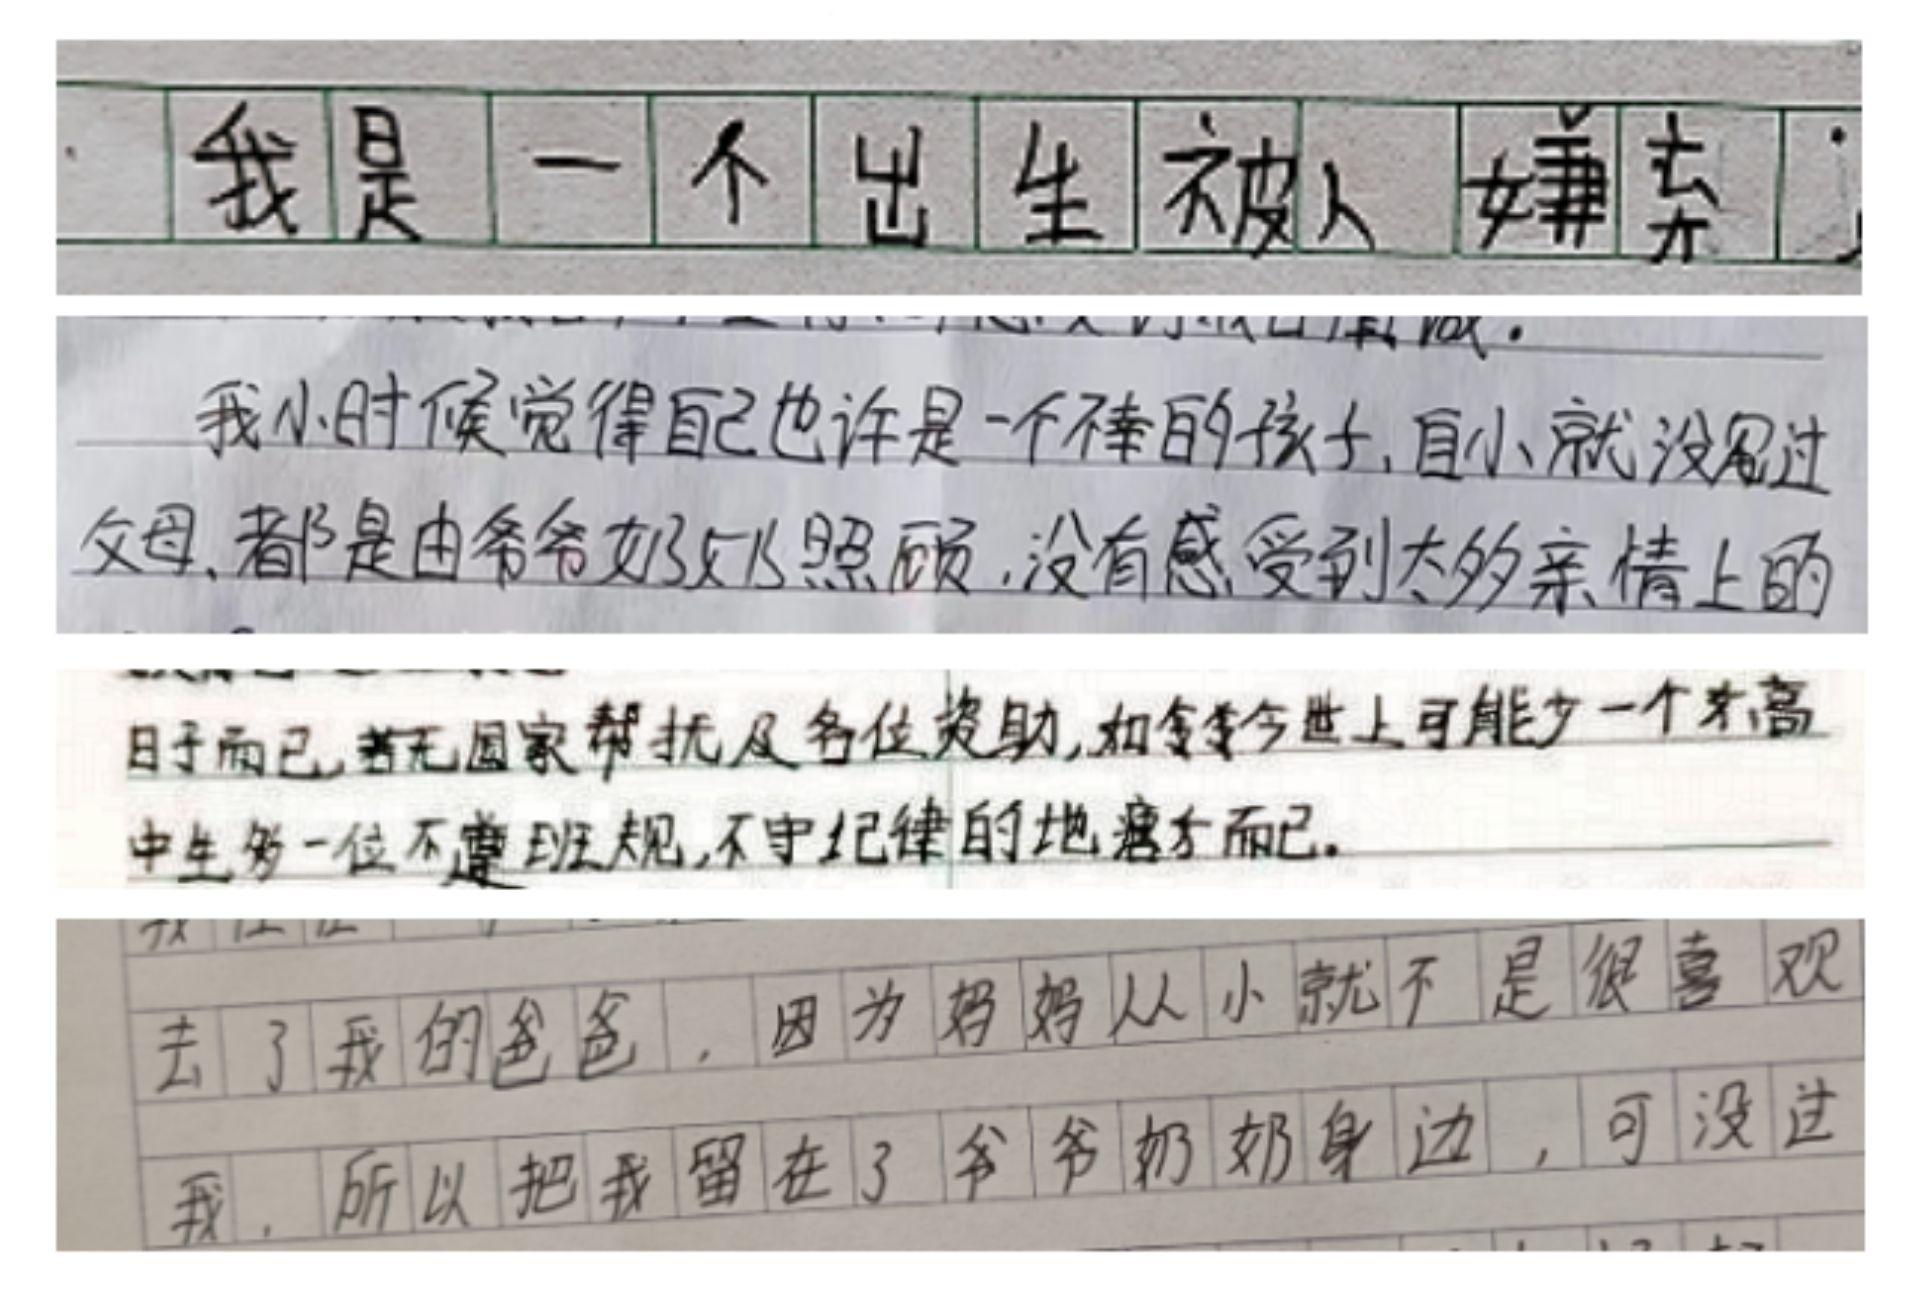 我是一个出生被人嫌弃
我小时候觉得自己也许是一个不幸的孩子,自小就没见过
父母、都是由爷爷奶奶照顾,没有感受到太多亲情上的
日子而已,若无国家帮扶及各位资助,如今世上可能少一个才高
中生多一位不遵班规,不守纪律的地方而已.
去了我的爸爸,因为妈妈从小就不是很喜欢
我,所以把我留在了爷爷奶奶身边,可没过